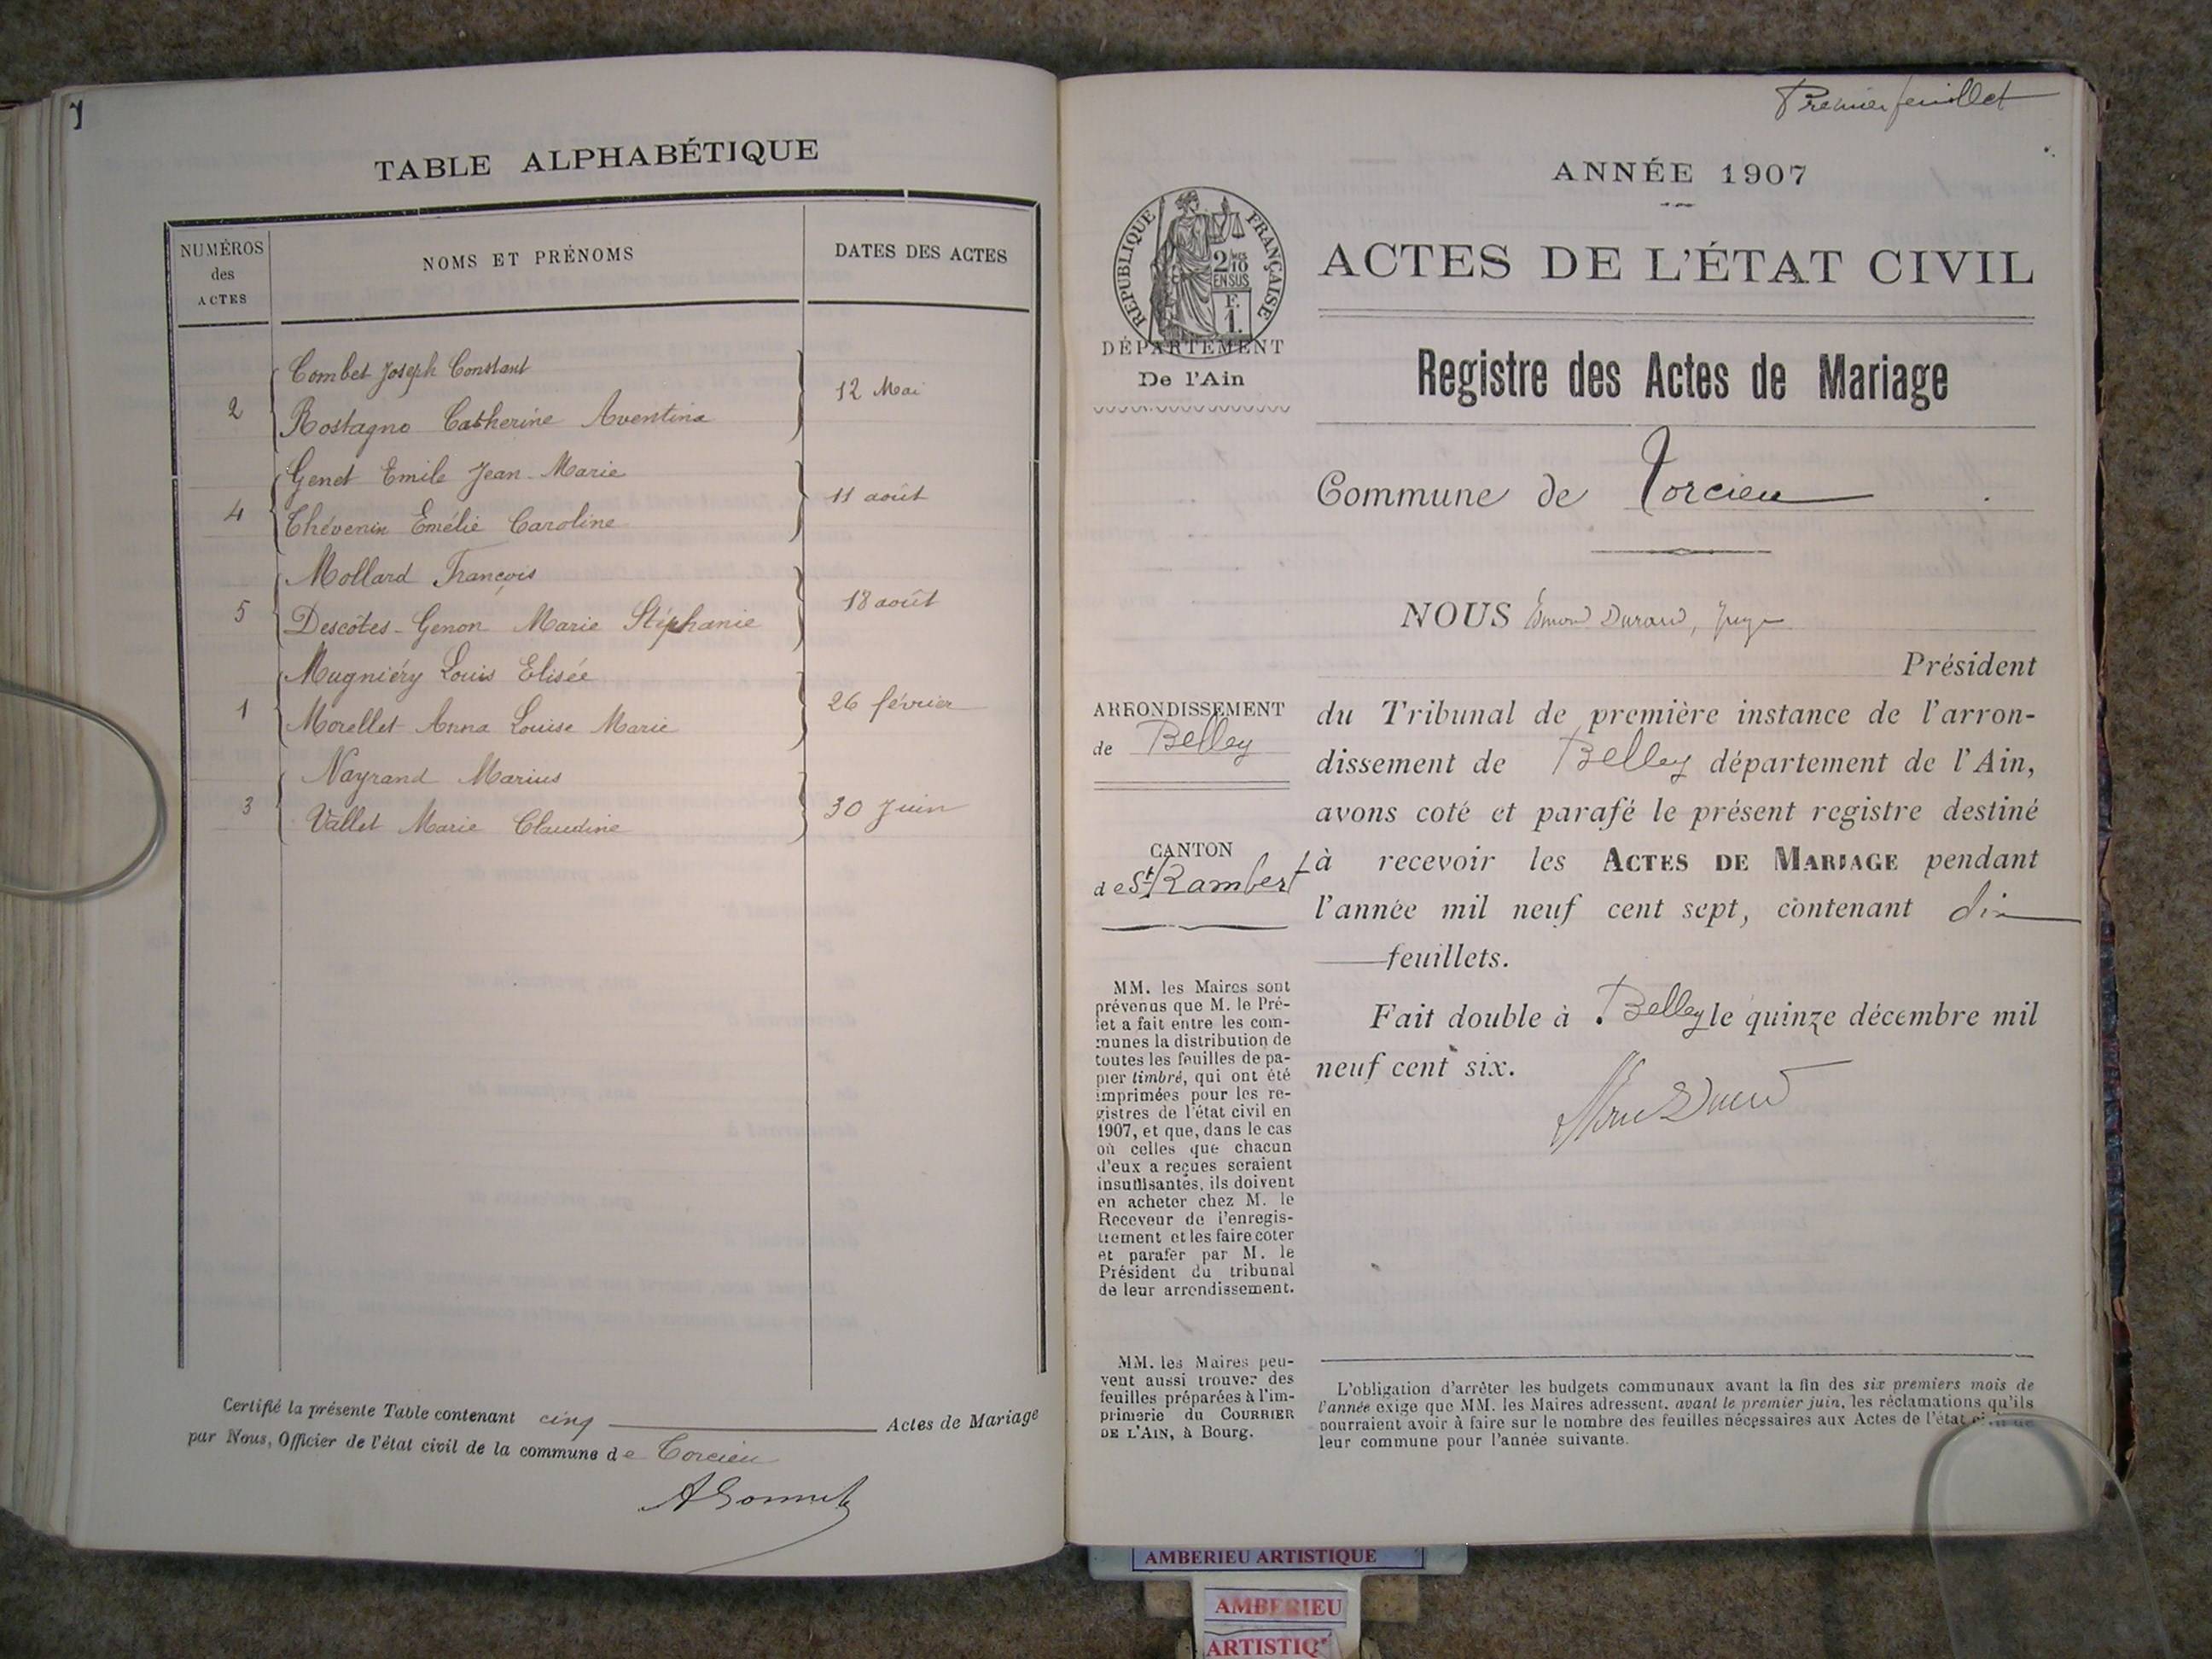 TABLE ALPHABÉTIQUE
NUMÉROS
des
ACTES
NOMS ET PRÉNOMS
DATES DES ACTES
Combet Joseph Constant
2
Rostagno Catherine Aventina
12 Mai
Genet Emile Jean-Marie
4
Thévenin Emélie Caroline
11 août
Mollard François
5
Descôtes-Genon Marie Stéphanie
18 août
Mugniéry Louis Elisée
1
Morellet Anna Louise Marie
26 février
Nayrand Marius
3
Vallet Marie Claudine
30 Juin
Certifié la présente Table contenant cinq Actes de Mariage
par Nous, Officier de l'état civil de la commune de Torcieu
Premier feuillet
ANNÉE 1907
ACTES DE L'ÉTAT CIVIL
RÉPUBLIQUE FRANÇAISE
2/10
EN SUS
F.
1.
DÉPARTEMENT
De l'Ain
Registre des Actes de Mariage
Commune de Torcieu
NOUS Durand, Juge
Président
du Tribunal de première instance de l'arron-
dissement de Belley département de l'Ain,
avons coté et parafé le présent registre destiné
à recevoir les ACTES DE MARIAGE pendant
l'année mil neuf cent sept, contenant dix
feuillets.
Fait double à Belley le quinze décembre mil
neuf cent six.
ARRONDISSEMENT
de Belley
CANTON
de St Rambert
MM. les Maires sont
prévenus que M. le Pré-
fet a fait entre les com-
munes la distribution de
toutes les feuilles de pa-
pier timbré, qui ont été
imprimées pour les re-
gistres de l'état civil en
1907, et que, dans le cas
où celles que chacun
d'eux a reçues seraient
insuffisantes, ils doivent
en acheter chez M. le
Receveur de l'enregis-
trement et les faire coter
et parafer par M. le
Président du tribunal
de leur arrondissement.
MM. les Maires peu-
vent aussi trouver des
feuilles préparées à l'im-
primerie du COURRIER
DE L'AIN, à Bourg.
L'obligation d'arrêter les budgets communaux avant la fin des six premiers mois de
l'année exige que MM. les Maires adressent, avant le premier juin, les réclamations qu'ils
pourraient avoir à faire sur le nombre des feuilles nécessaires aux Actes de l'état civil de
leur commune pour l'année suivante.
AMBERIEU ARTISTIQUE
AMBERIEU
ARTISTIQ